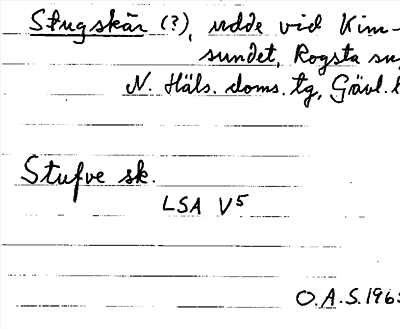 Stugskär (?), udde vid Kim-
sundet, Rogsta
N. Häls. doms. tg, Gävl.
Stufve sk.
LSA V5
O.A.S. 196